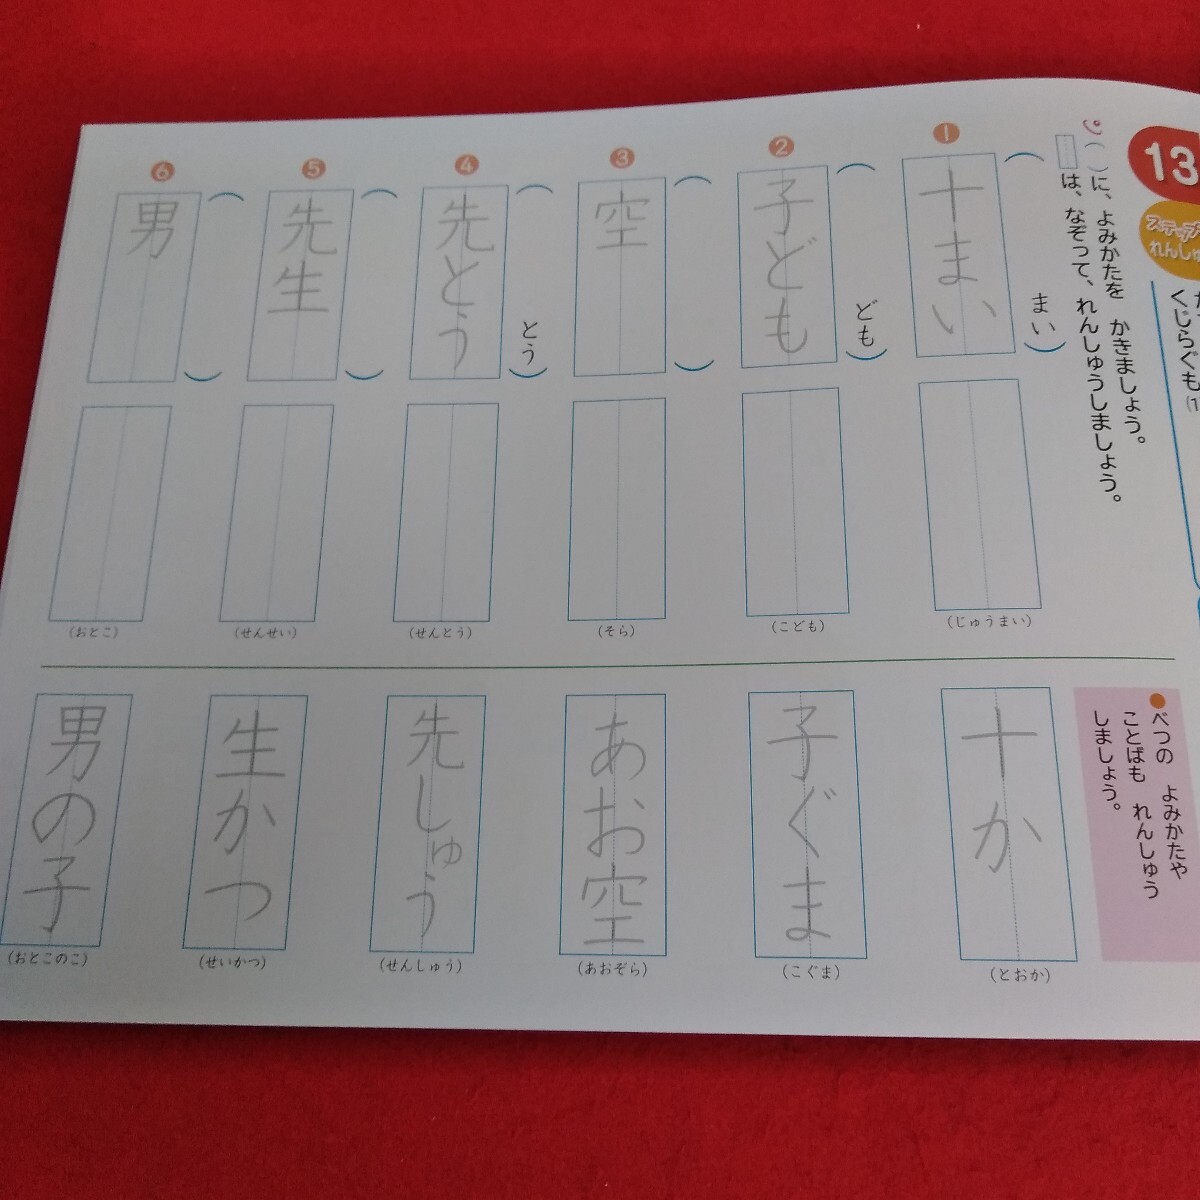 13
ステップ
れんしゅ
くじらぐも
(1
( )に、よみかたを かきましょう。
は、なぞって、れんしゅうしましょう。
1
まい
十まい
(じゅうまい)
2
ども
子ども
(こども)
3
空
(そら)
4
とう
先とう
(せんとう)
5
先生
(せんせい)
6
男
(おとこ)
●べつの よみかたや
ことばも れんしゅう
しましょう。
十か
(とおか)
子ぐま
(こぐま)
あお空
(あおぞら)
先しゅう
(せんしゅう)
生かつ
(せいかつ)
男の子
(おとこのこ)